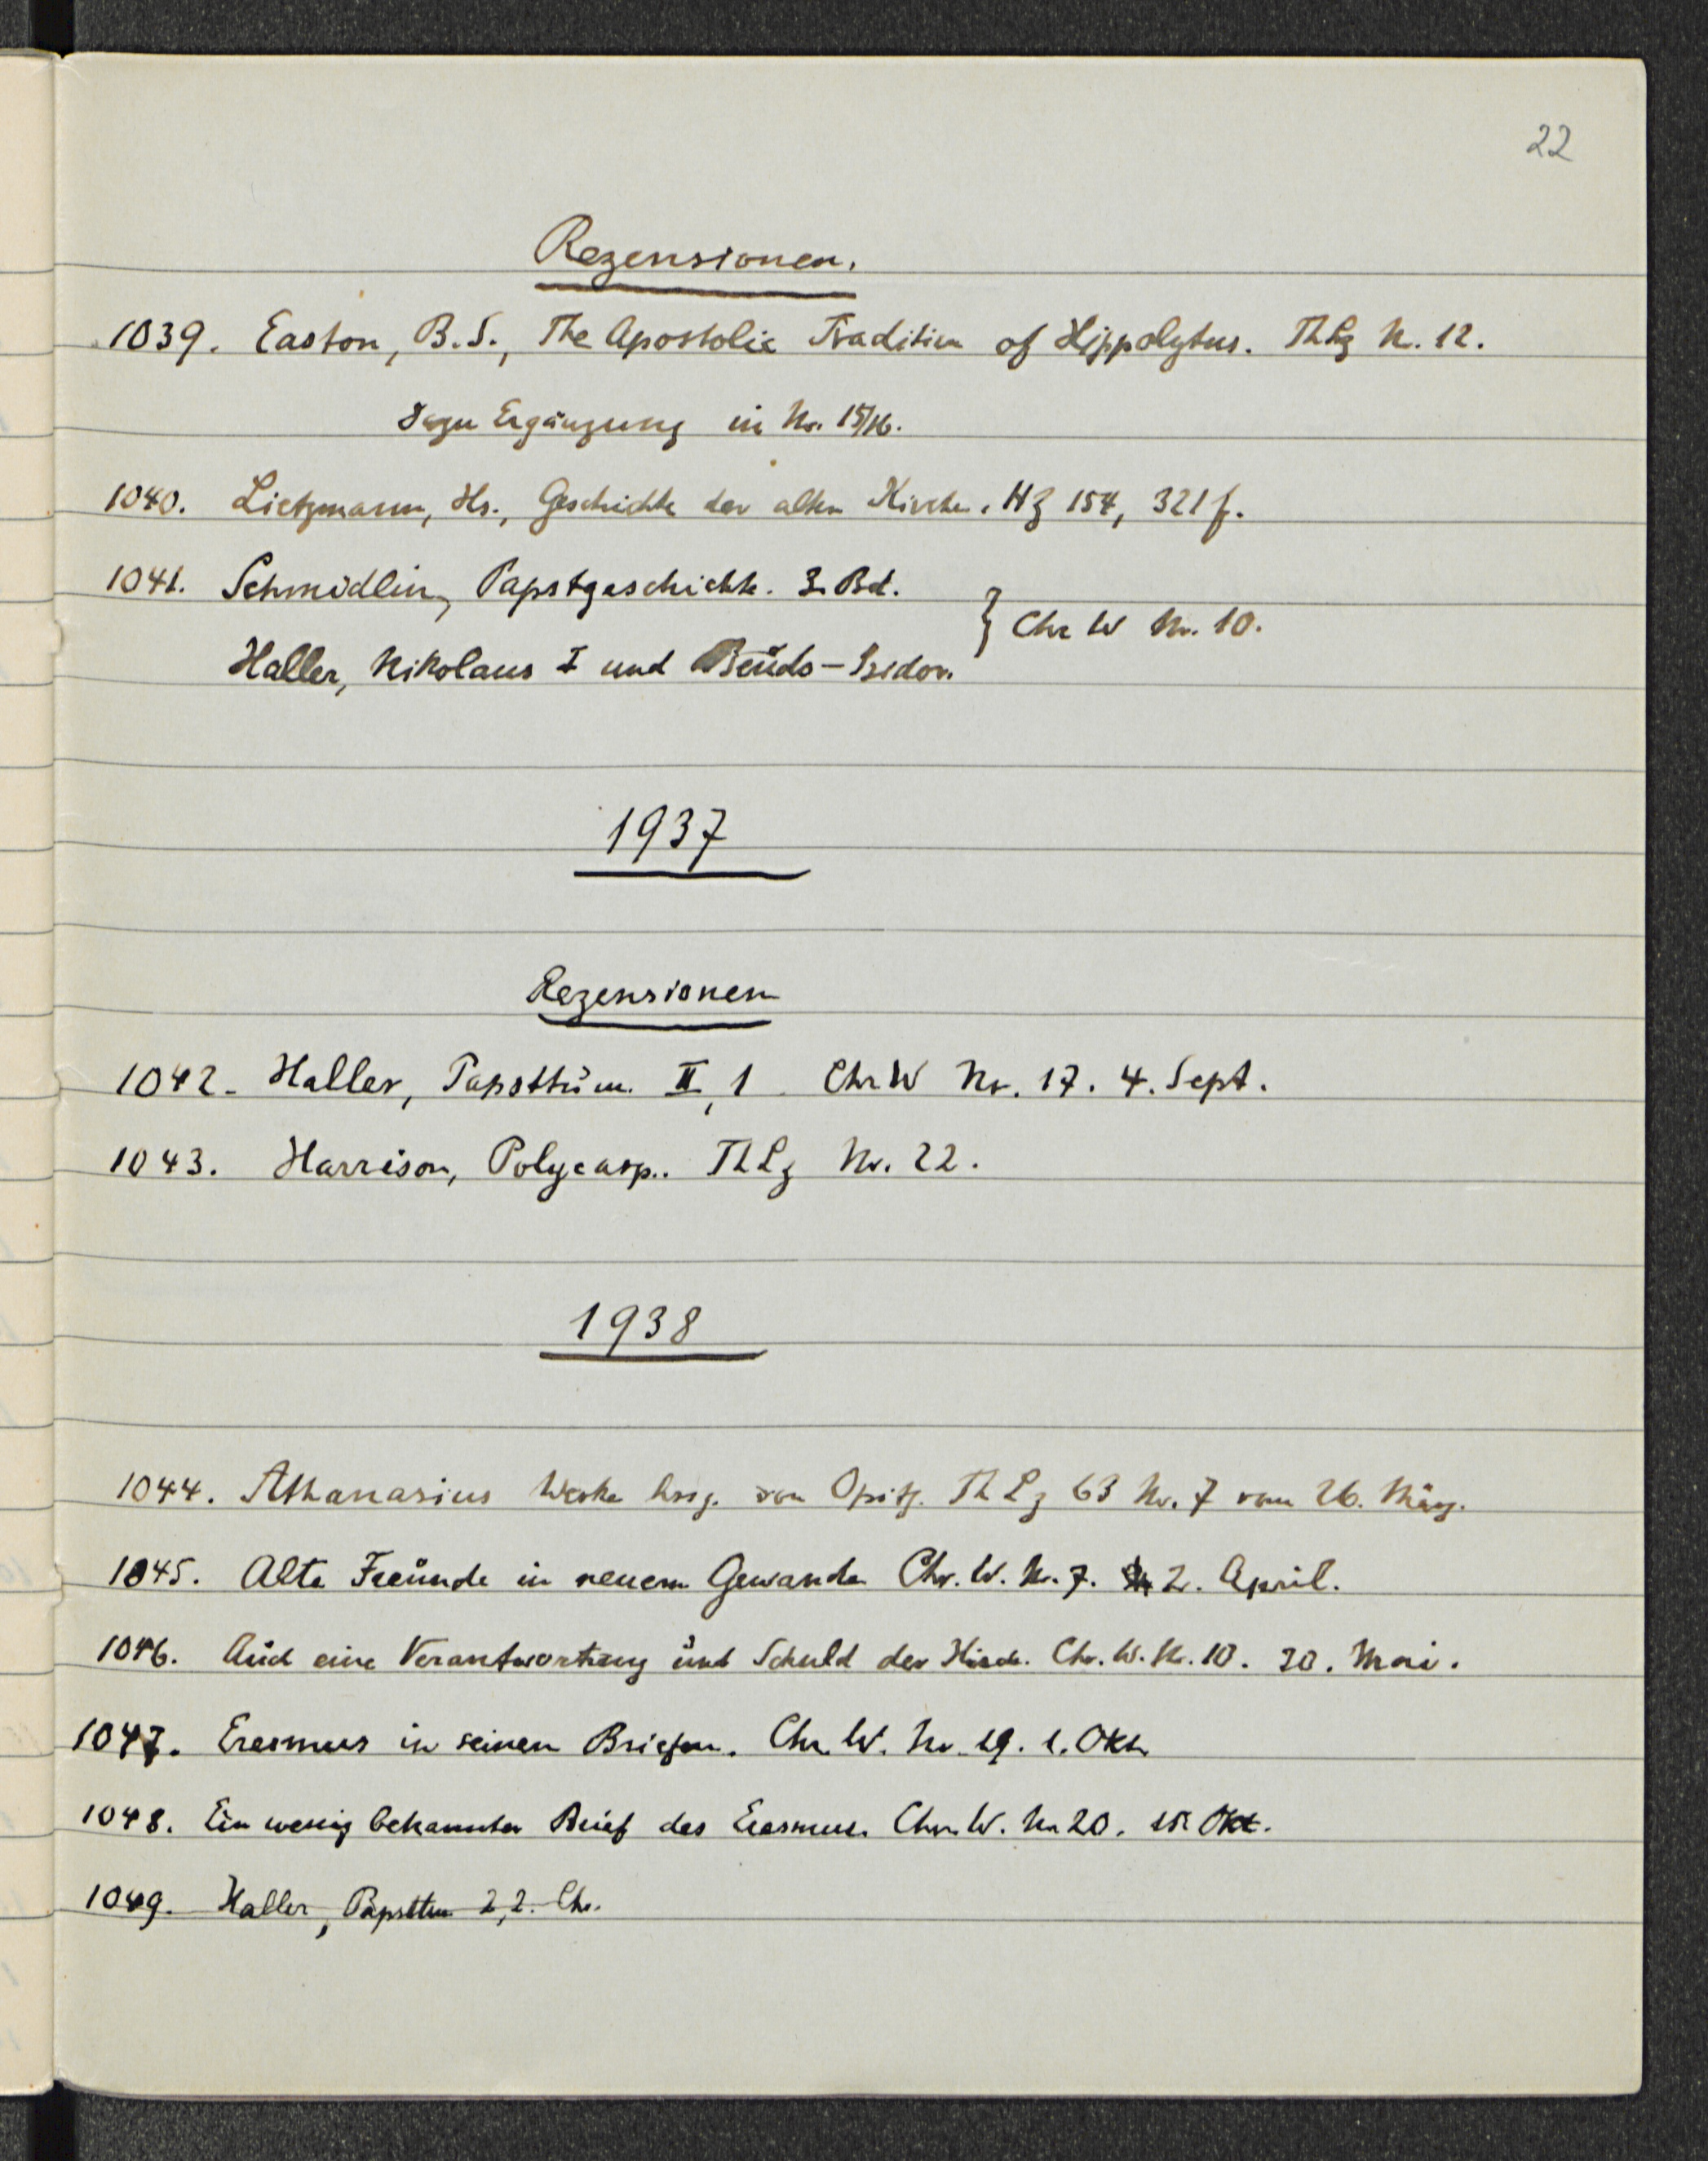 22
Rezensionen.
1039. Easton, B.S., The Apostolic Tradition of Hippolytus. ThLz Nr. 12.
Dazu Ergänzung in Nr. 15/16.
1040. Lietzmann, Hs., Geschichte der alten Kirche. HZ 154, 321 f.
1041. Schmidlin, Papstgeschichte. 3. Bd.
} Chr W Nr. 10.
Haller, Nikolaus I und Pseudo-Isidor.
1937
Rezensionen
1042. Haller, Papsttum II, 1. Chr. W Nr. 17. 4. Sept.
1043. Harrison, Polycarp.. ThLz Nr. 22.
1938
1044. Athanasius Werke hrsg. von Opitz. ThLz 63 Nr. 7 vom 26. März.
1045. Alte Freunde in neuem Gewande Chr. W. Nr. 7. 2. April.
1046. Auch eine Verantwortung und Schuld der Chr. W. Nr. 10. Mai.
1047. Erasmus in seinen Briefen. Chr. W. Nr. 19. 1. Okt.
1048. Ein wenig bekannter Brief des Erasmus. Chr. W. Nr. 20. 15. Okt.
1049. Haller, Papsttum 2,2. Chr.